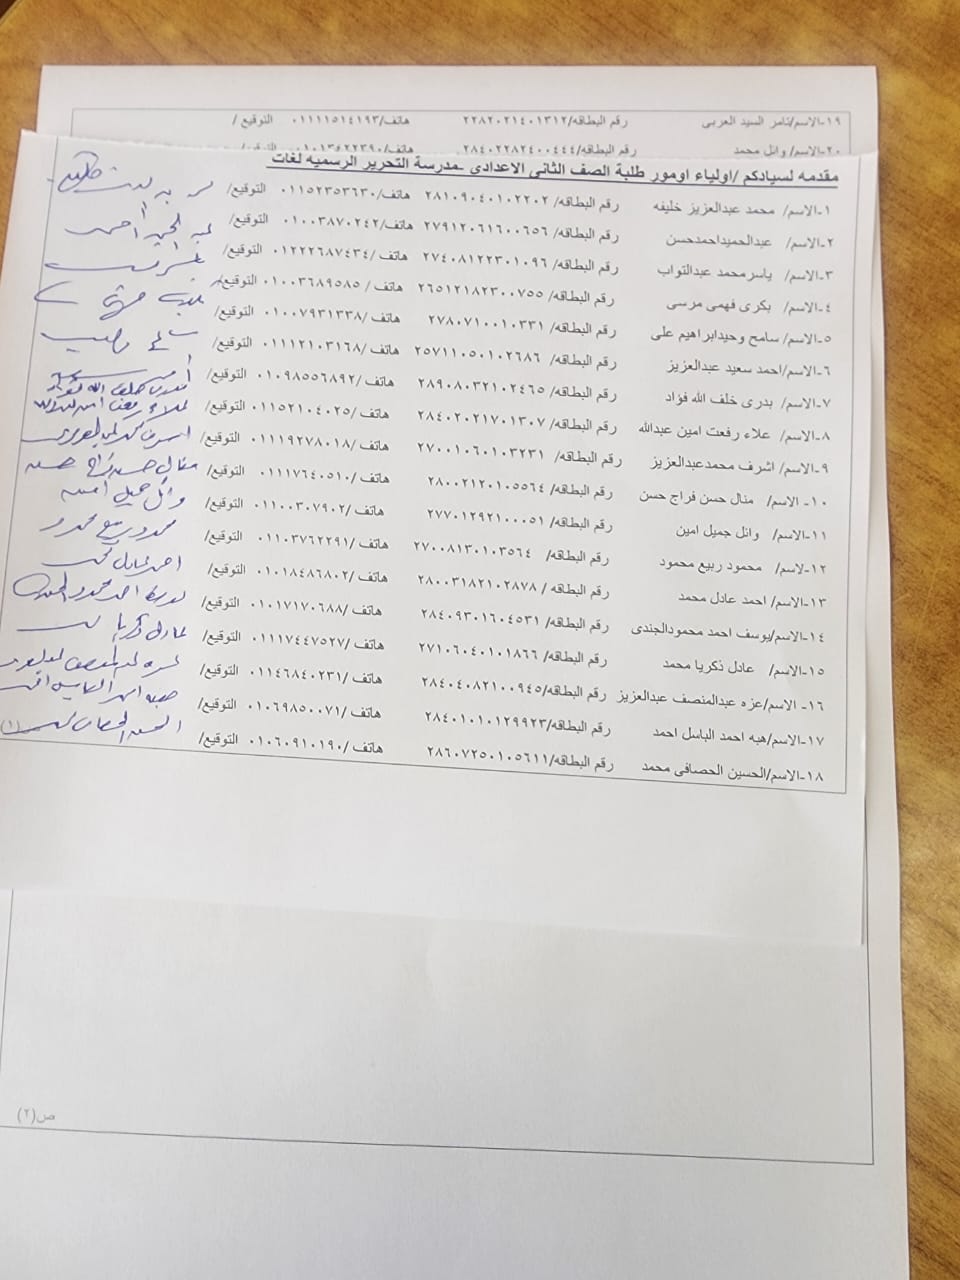 ١٩-الاسم/تامر السيد العربى رقم البطاقه/٢٢٨٢٠٢١٤٠١٣١٢ هاتف/٠١١١١٥١٤١٩٣ التوقيع/
٢٠-الاسم/ وائل محمد رقم البطاقه/٢٨٤٠٢٢٨٢٤٠٠٤٤٤ هاتف/ التوقيع/
مقدمه لسيادكم /اولياء اومور طلبة الصف الثانى الاعدادى -مدرسة التحرير الرسميه لغات
١-الاسم/ محمد عبدالعزيز خليفه رقم البطاقه/ ٢٨١٠٩٠٤٠١٠٢٢٠٢ هاتف/٠١١٥٢٣٥٣٦٣٠ التوقيع/
٢-الاسم/ عبدالحميداحمدحسن رقم البطاقه/ ٢٧٩١٢٠٦١٦٠٠٦٥٦ هاتف/٠١٠٠٣٨٧٠٢٤٢ التوقيع/ عبد الحميد احمد
٣-الاسم/ ياسرمحمد عبدالتواب رقم البطاقه/ ٢٧٤٠٨١٢٢٣٠١٠٩٦ هاتف/٠١٢٢٢٦٨٧٤٣٤ التوقيع/
٤-الاسم/ بكرى فهمى مرسى رقم البطاقه/ ٢٦٥١٢١٨٢٣٠٠٧٥٥ هاتف/ ٠١٠٠٣٦٨٩٥٨٥ التوقيع/
٥-الاسم/ سامح وحيدابراهيم على رقم البطاقه/ ٢٧٨٠٧١٠٠١٠٣٣١ هاتف/ ٠١٠٠٧٩٣١٣٣٨ التوقيع/
٦-الاسم/احمد سعيد عبدالعزيز رقم البطاقه/ ٢٥٧١١٠٥٠١٠٢٦٨٦ هاتف/٠١١١٢١٠٣١٦٨ التوقيع/
٧-الاسم/ بدرى خلف الله فؤاد رقم البطاقه/ ٢٨٩٠٨٠٣٢١٠٢٤٦٥ هاتف/ ٠١٠٩٨٥٥٦٨٩٢ التوقيع/
٨-الاسم/ علاء رفعت امين عبدالله رقم البطاقه/ ٢٨٤٠٢٠٢١٧٠١٣٠٧ هاتف/٠١١٥٢١٠٤٠٢٥ التوقيع/
٩-الاسم/ اشرف محمدعبدالعزيز رقم البطاقه/ ٢٧٠٠١٠٦٠١٠٣٢٣١ هاتف/٠١١١٩٢٧٨٠١٨ التوقيع/
١٠- الاسم/ منال حسن فراج حسن رقم البطاقه/ ٢٨٠٠٢١٢٠١٠٥٥٦٤ هاتف/٠١١١٧٦٤٠٥١٠ التوقيع/
١١-الاسم/ وائل جميل امين رقم البطاقه/ ٢٧٧٠١٢٩٢١٠٠٠٥١ هاتف/ ٠١١٠٠٣٠٧٩٠٢ التوقيع/ وائل جميل امين
١٢-لاسم/ محمود ربيع محمود رقم البطاقه/ ٢٧٠٠٨١٣٠١٠٣٥٦٤ هاتف/٠١١٠٣٧٦٢٢٩١ التوقيع/ محمود ربيع محمود
١٣-الاسم/ احمد عادل محمد رقم البطاقه/ ٢٨٠٠٣١٨٢١٠٢٨٧٨ هاتف/ ٠١٠١٨٤٨٦٨٠٢ التوقيع/ احمد عادل محمد
١٤-الاسم/يوسف احمد محمودالجندى رقم البطاقه/ ٢٨٤٠٩٣٠١٦٠٤٥٣١ هاتف/٠١٠١٧١٧٠٦٨٨ التوقيع/
١٥-الاسم/ عادل ذكريا محمد رقم البطاقه/ ٢٧١٠٦٠٤٠١٠١٨٦٦ هاتف/ ٠١١١٧٤٤٧٥٢٧ التوقيع/
١٦- الاسم/عزه عبدالمنصف عبدالعزيز رقم البطاقه/٢٨٤٠٤٠٨٢١٠٠٩٤٥ هاتف/ ٠١١٤٦٨٤٠٢٣١ التوقيع/
١٧-الاسم/هبه احمد الباسل احمد رقم البطاقه/٢٨٤٠١٠١٠١٢٩٩٢٣ هاتف/٠١٠٦٩٨٥٠٠٧١ التوقيع/
١٨-الاسم/الحسين الحصافى محمد رقم البطاقه/٢٨٦٠٧٢٥٠١٠٥٦١١ هاتف/٠١٠٦٠٩١٠١٩٠ التوقيع/
(١)
ص(٢)